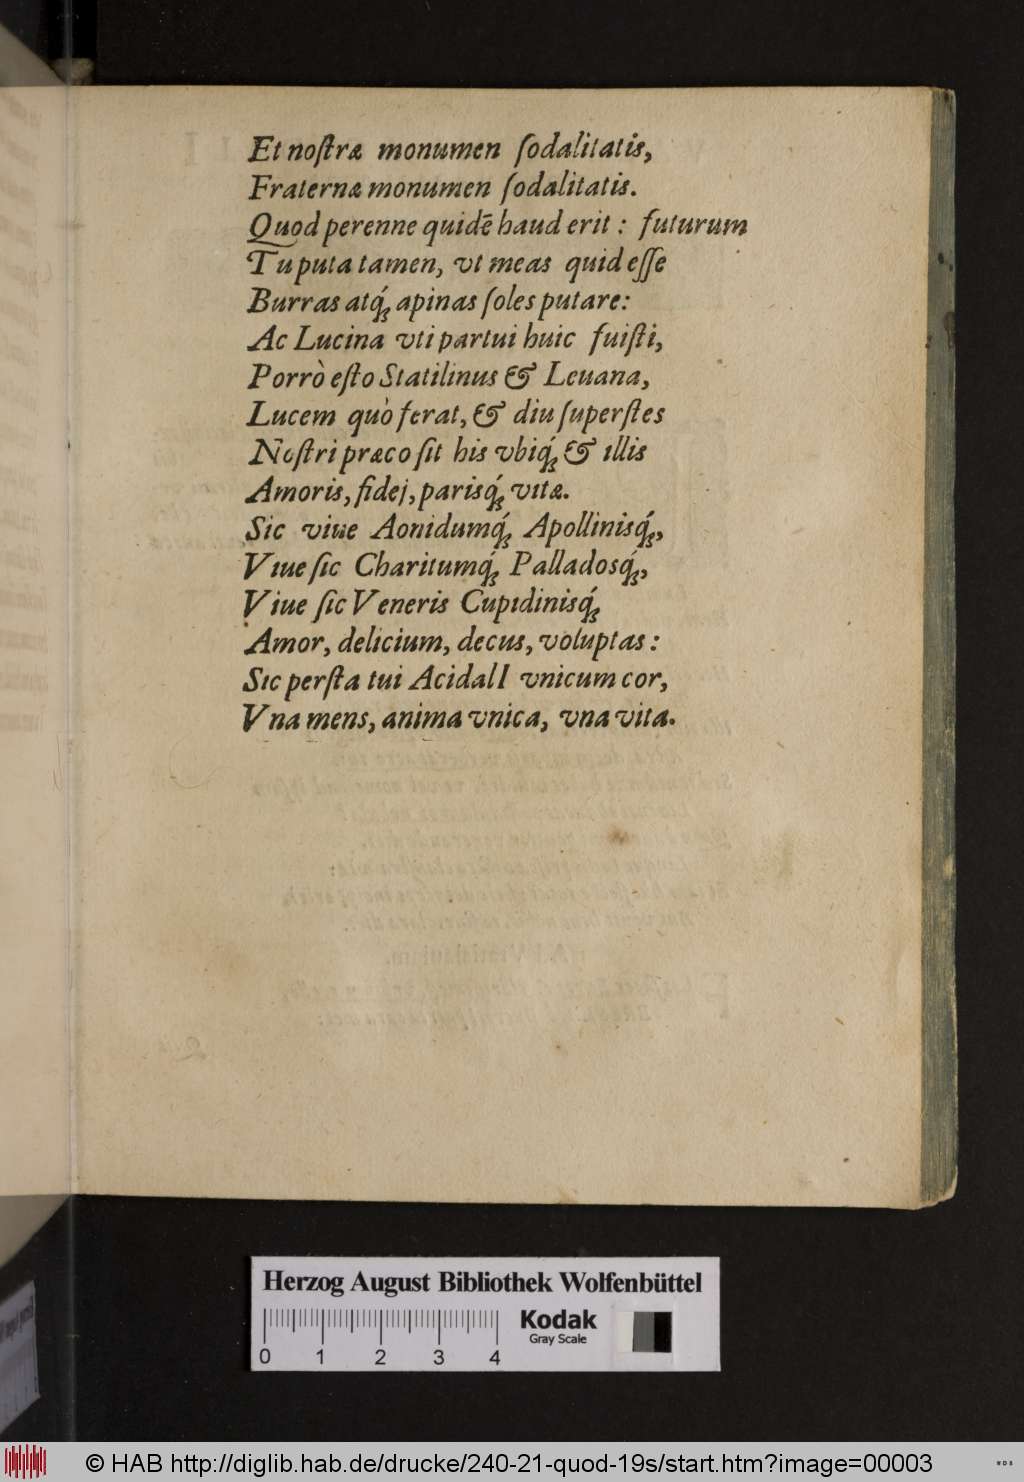 Et noſtræ monumen ſodalitatis,
Fraternæ monumen ſodalitatis.
Quod perenne quidē haud erit: futurum
Tu puta tamen, vt meas quid eſſe
Burras atq́; apinas ſoles putare:
Ac Lucina vti partui huic fuiſti,
Porrò eſto Statilinus & Leuana,
Lucem quò ferat, & diu ſuperſtes
Noſtri præco ſit his vbiq́; & illis
Amoris, fidej, parisq́; vitæ.
Sic viue Aonidumq́; Apollinisq́;,
Viue ſic Charitumq́; Palladosq́;,
Viue ſic Veneris Cupidinisq́;
Amor, delicium, decus, voluptas:
Sic perſta tui Acidall vnicum cor,
Vna mens, anima vnica, vna vita.
Herzog August Bibliothek Wolfenbüttel
Kodak
Gray Scale
0 1 2 3 4
© HAB http://diglib.hab.de/drucke/240-21-quod-19s/start.htm?image=00003